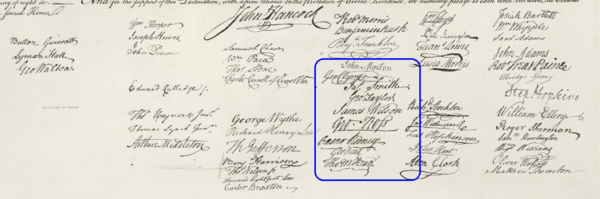 And for the support of this Declaration, with a firm reliance on the
John Hancock
Button Gwinnett
Lyman Hall
Geo Walton.
Wm Hooper
Joseph Hewes,
John Penn
Edward Rutledge.
Thos Heyward Junr.
Thomas Lynch Junr.
Arthur Middleton
Samuel Chase
Wm Paca
Thos Stone
Charles Carroll of Carrollton
George Wythe
Richard Henry Lee
Th Jefferson
Benj Harrison
Thos Nelson jr.
Francis Lightfoot Lee
Carter Braxton
Robt Morris
Benjamin Rush
Benj. Franklin
John Morton
Geo Clymer
Jas. Smith
Geo. Taylor
James Wilson
Geo. Ross
Caesar Rodney
Geo Read
Tho M:Kean
Wm Floyd
Phil. Livingston
Frans. Lewis
Lewis Morris
Richd. Stockton
Jno Witherspoon
Fras. Hopkinson
John Hart
Abra Clark
Josiah Bartlett
Wm Whipple
Saml Adams
John Adams
Robt Treat Paine
Elbridge Gerry
Step. Hopkins
William Ellery
Roger Sherman
Sam Huntington
Wm Williams
Oliver Wolcott
Matthew Thornton